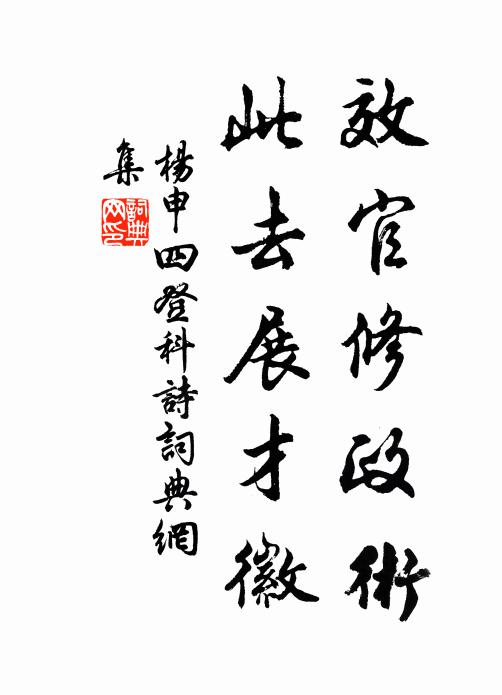 效官修政術
此去展才徽
楊申四登科詩詞典網
集
詞典网印